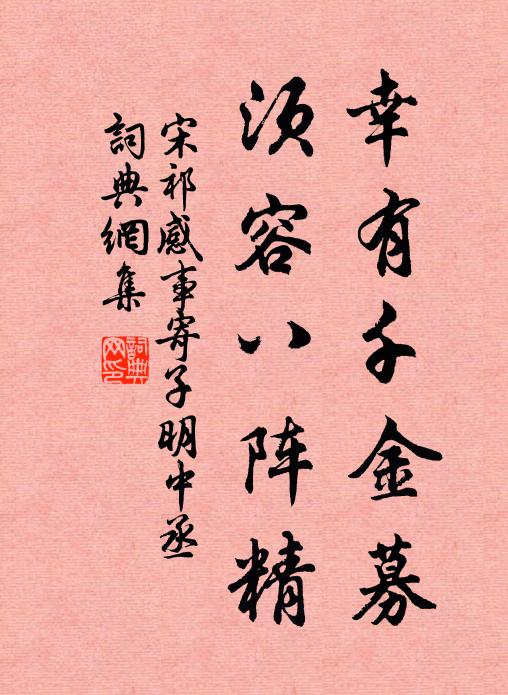 幸有千金募
须容八阵精
宋祁感事寄子明中丞
詞典網集
詞典网印